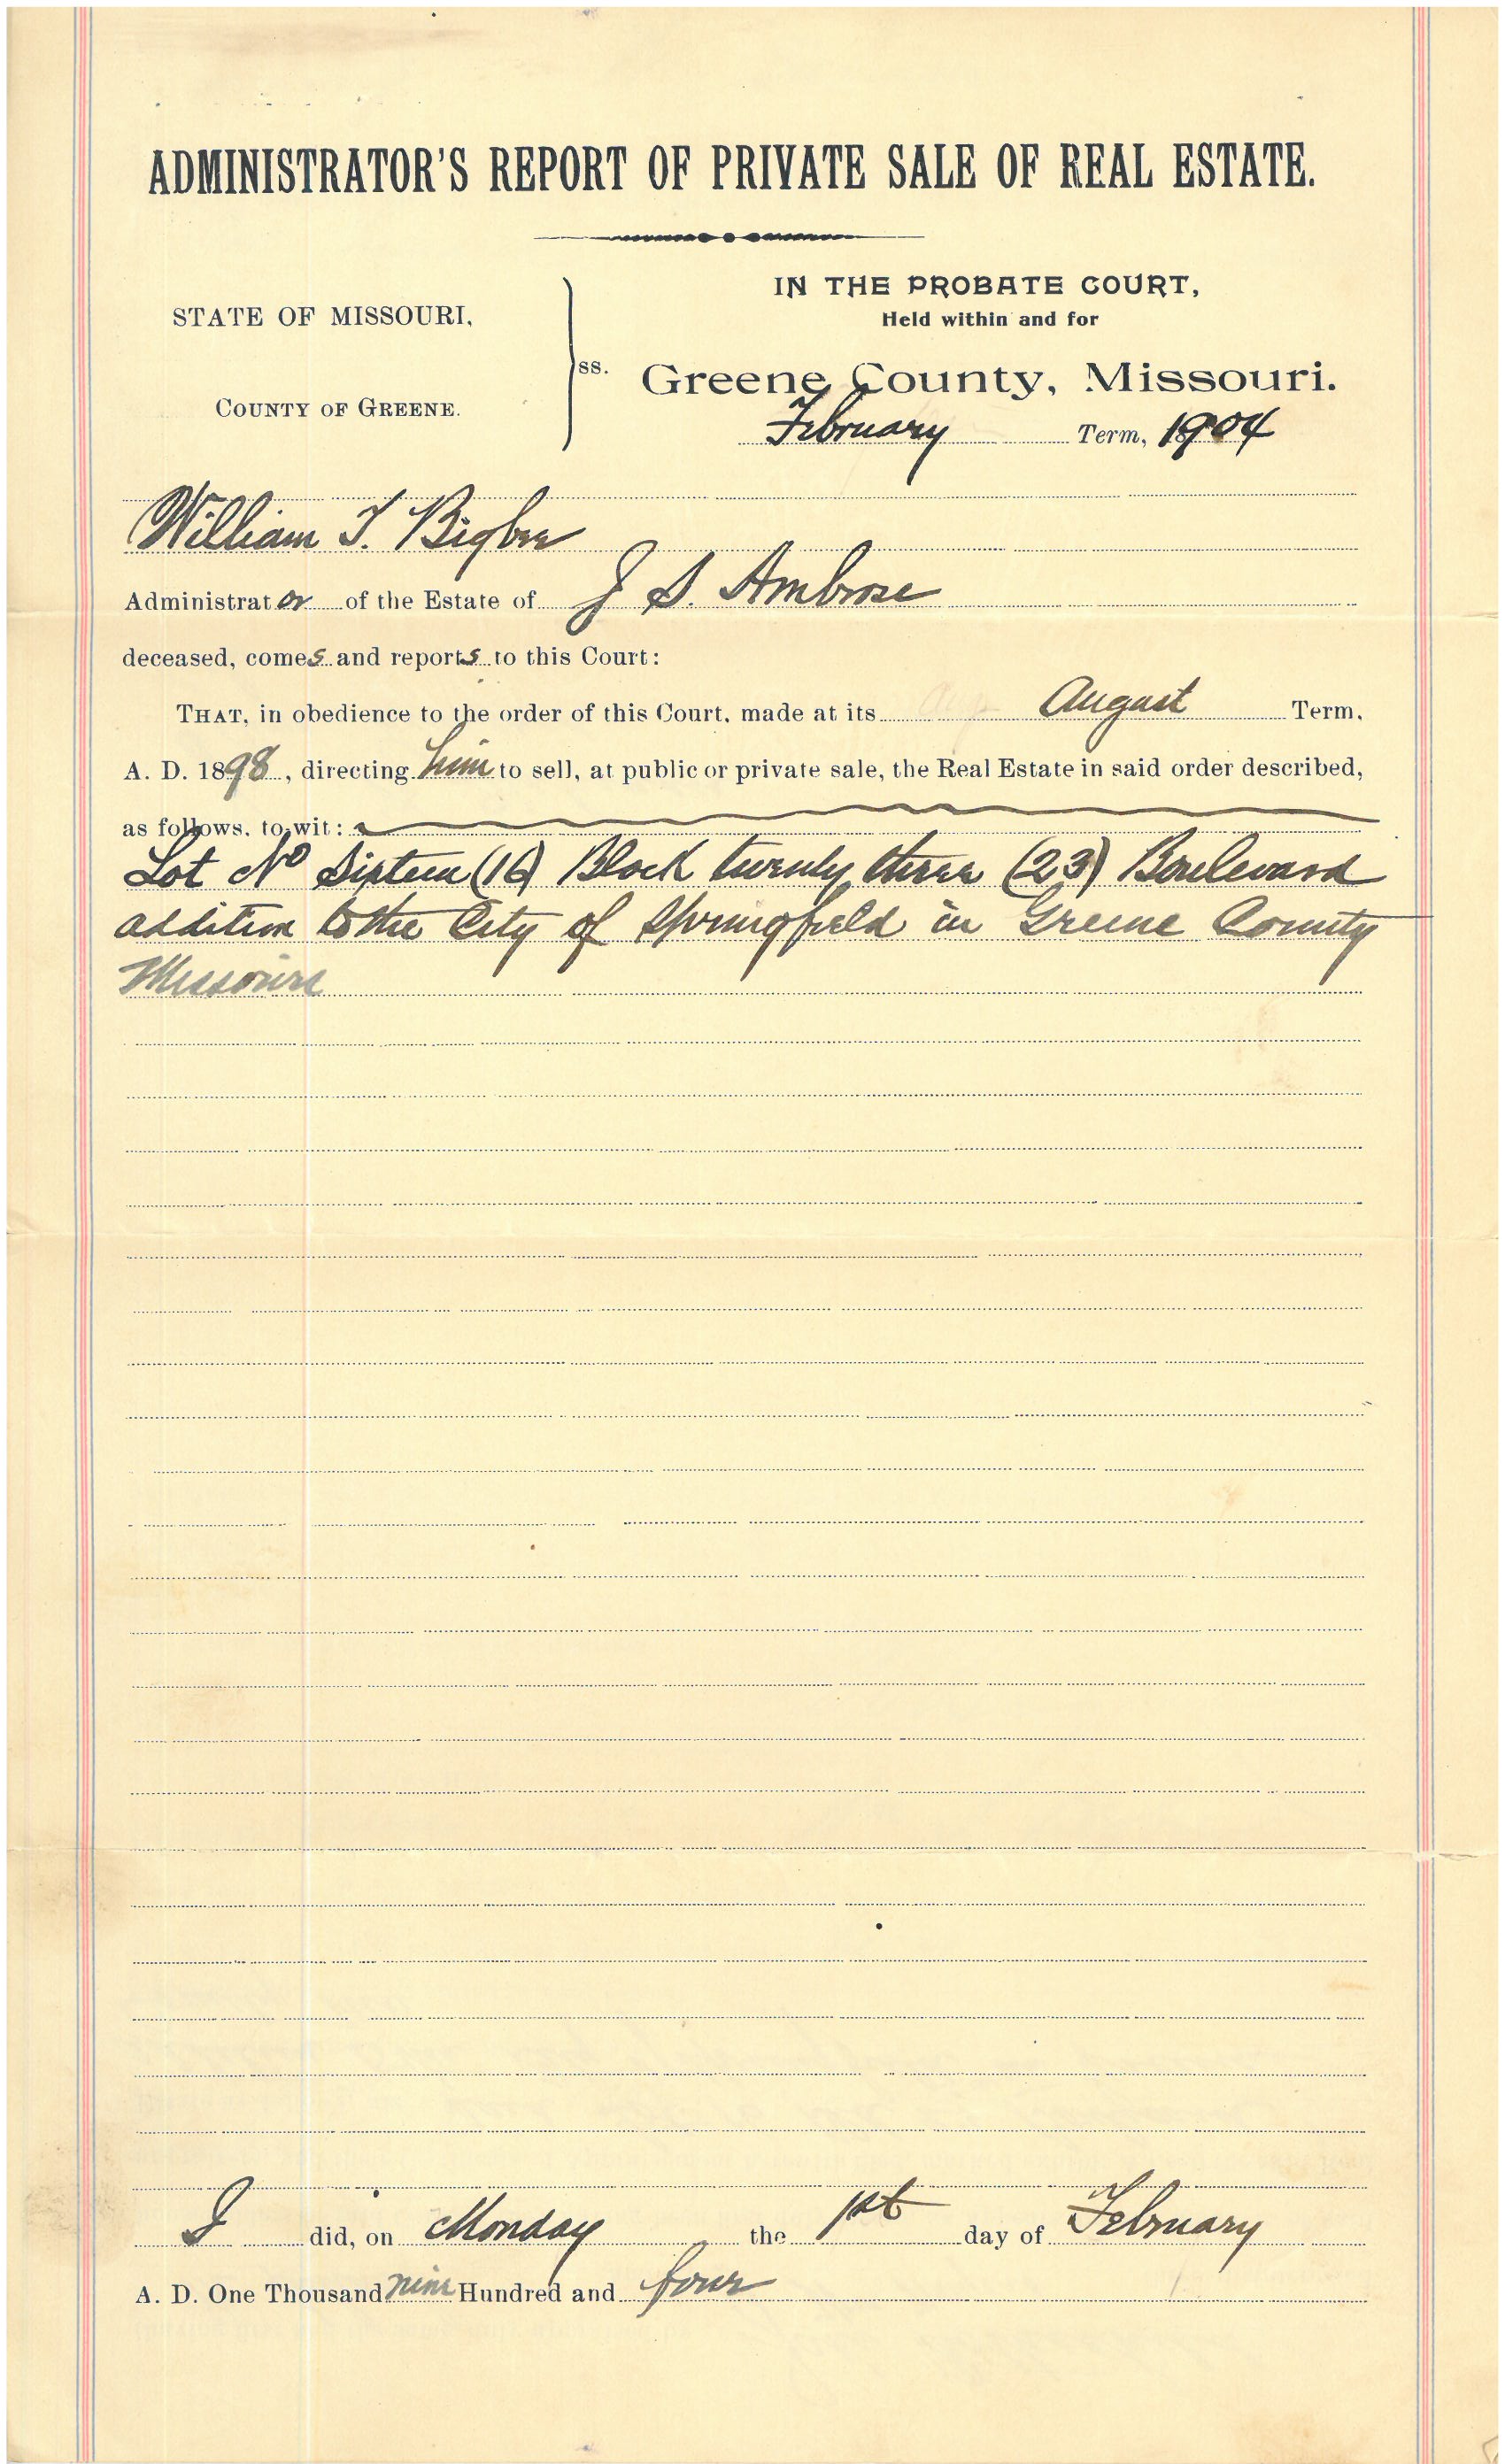 ADMINISTRATOR'S REPORT OF PRIVATE SALE OF REAL ESTATE.
STATE OF MISSOURI,
COUNTY OF GREENE.
ss.
IN THE PROBATE COURT,
Held within and for
Greene County, Missouri.
February Term, 1904
William T. Bigbee
Administrator of the Estate of J S. Ambrose
deceased, comes and reports to this Court:
THAT, in obedience to the order of this Court, made at its August Term,
A. D. 1898, directing him to sell, at public or private sale, the Real Estate in said order described,
as follows, to-wit:
Lot No Sixteen (16) Block twenty three (23) Boulevard
addition to the City of Springfield in Greene County
Missouri
I did, on Monday the 1st day of February
A. D. One Thousand nine Hundred and four